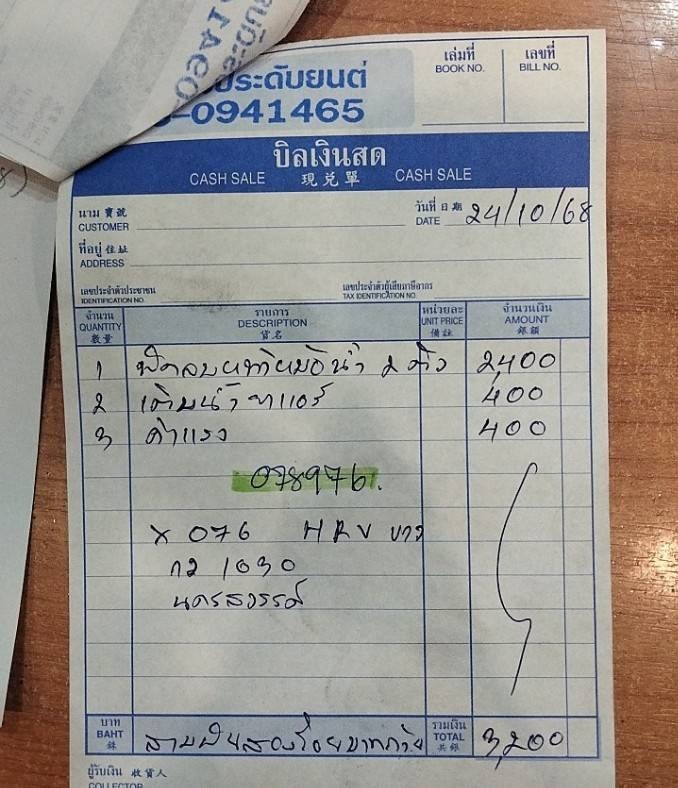 ประดับยนต์
-0941465
เล่มที่ เลขที่
BOOK NO. BILL NO.
บิลเงินสด
CASH SALE 現兌單 CASH SALE
นาม 寶號
CUSTOMER
วันที่ 日期
DATE 24/10/68
ที่อยู่ 住址
ADDRESS
เลขประจำตัวประชาชน เลขประจำตัวผู้เสียภาษีอากร
IDENTIFICATION NO. TAX IDENTIFICATION NO.
จำนวน รายการ หน่วยละ จำนวนเงิน
QUANTITY DESCRIPTION UNIT PRICE AMOUNT
數量 貨名 備註 銀額
1 พัดลมหม้อน้ำ 2 ตัว 2400
2 เติมน้ำยาแอร์ 400
3 ค่าแรง 400
078976.
x 076 HRV ขาว
กว 1030
นครสวรรค์
บาท รวมเงิน
BAHT สามพันสองร้อยบาทถ้วน TOTAL 3,200
銖 共銀
ผู้รับเงิน 收貨人
COLLECTOR